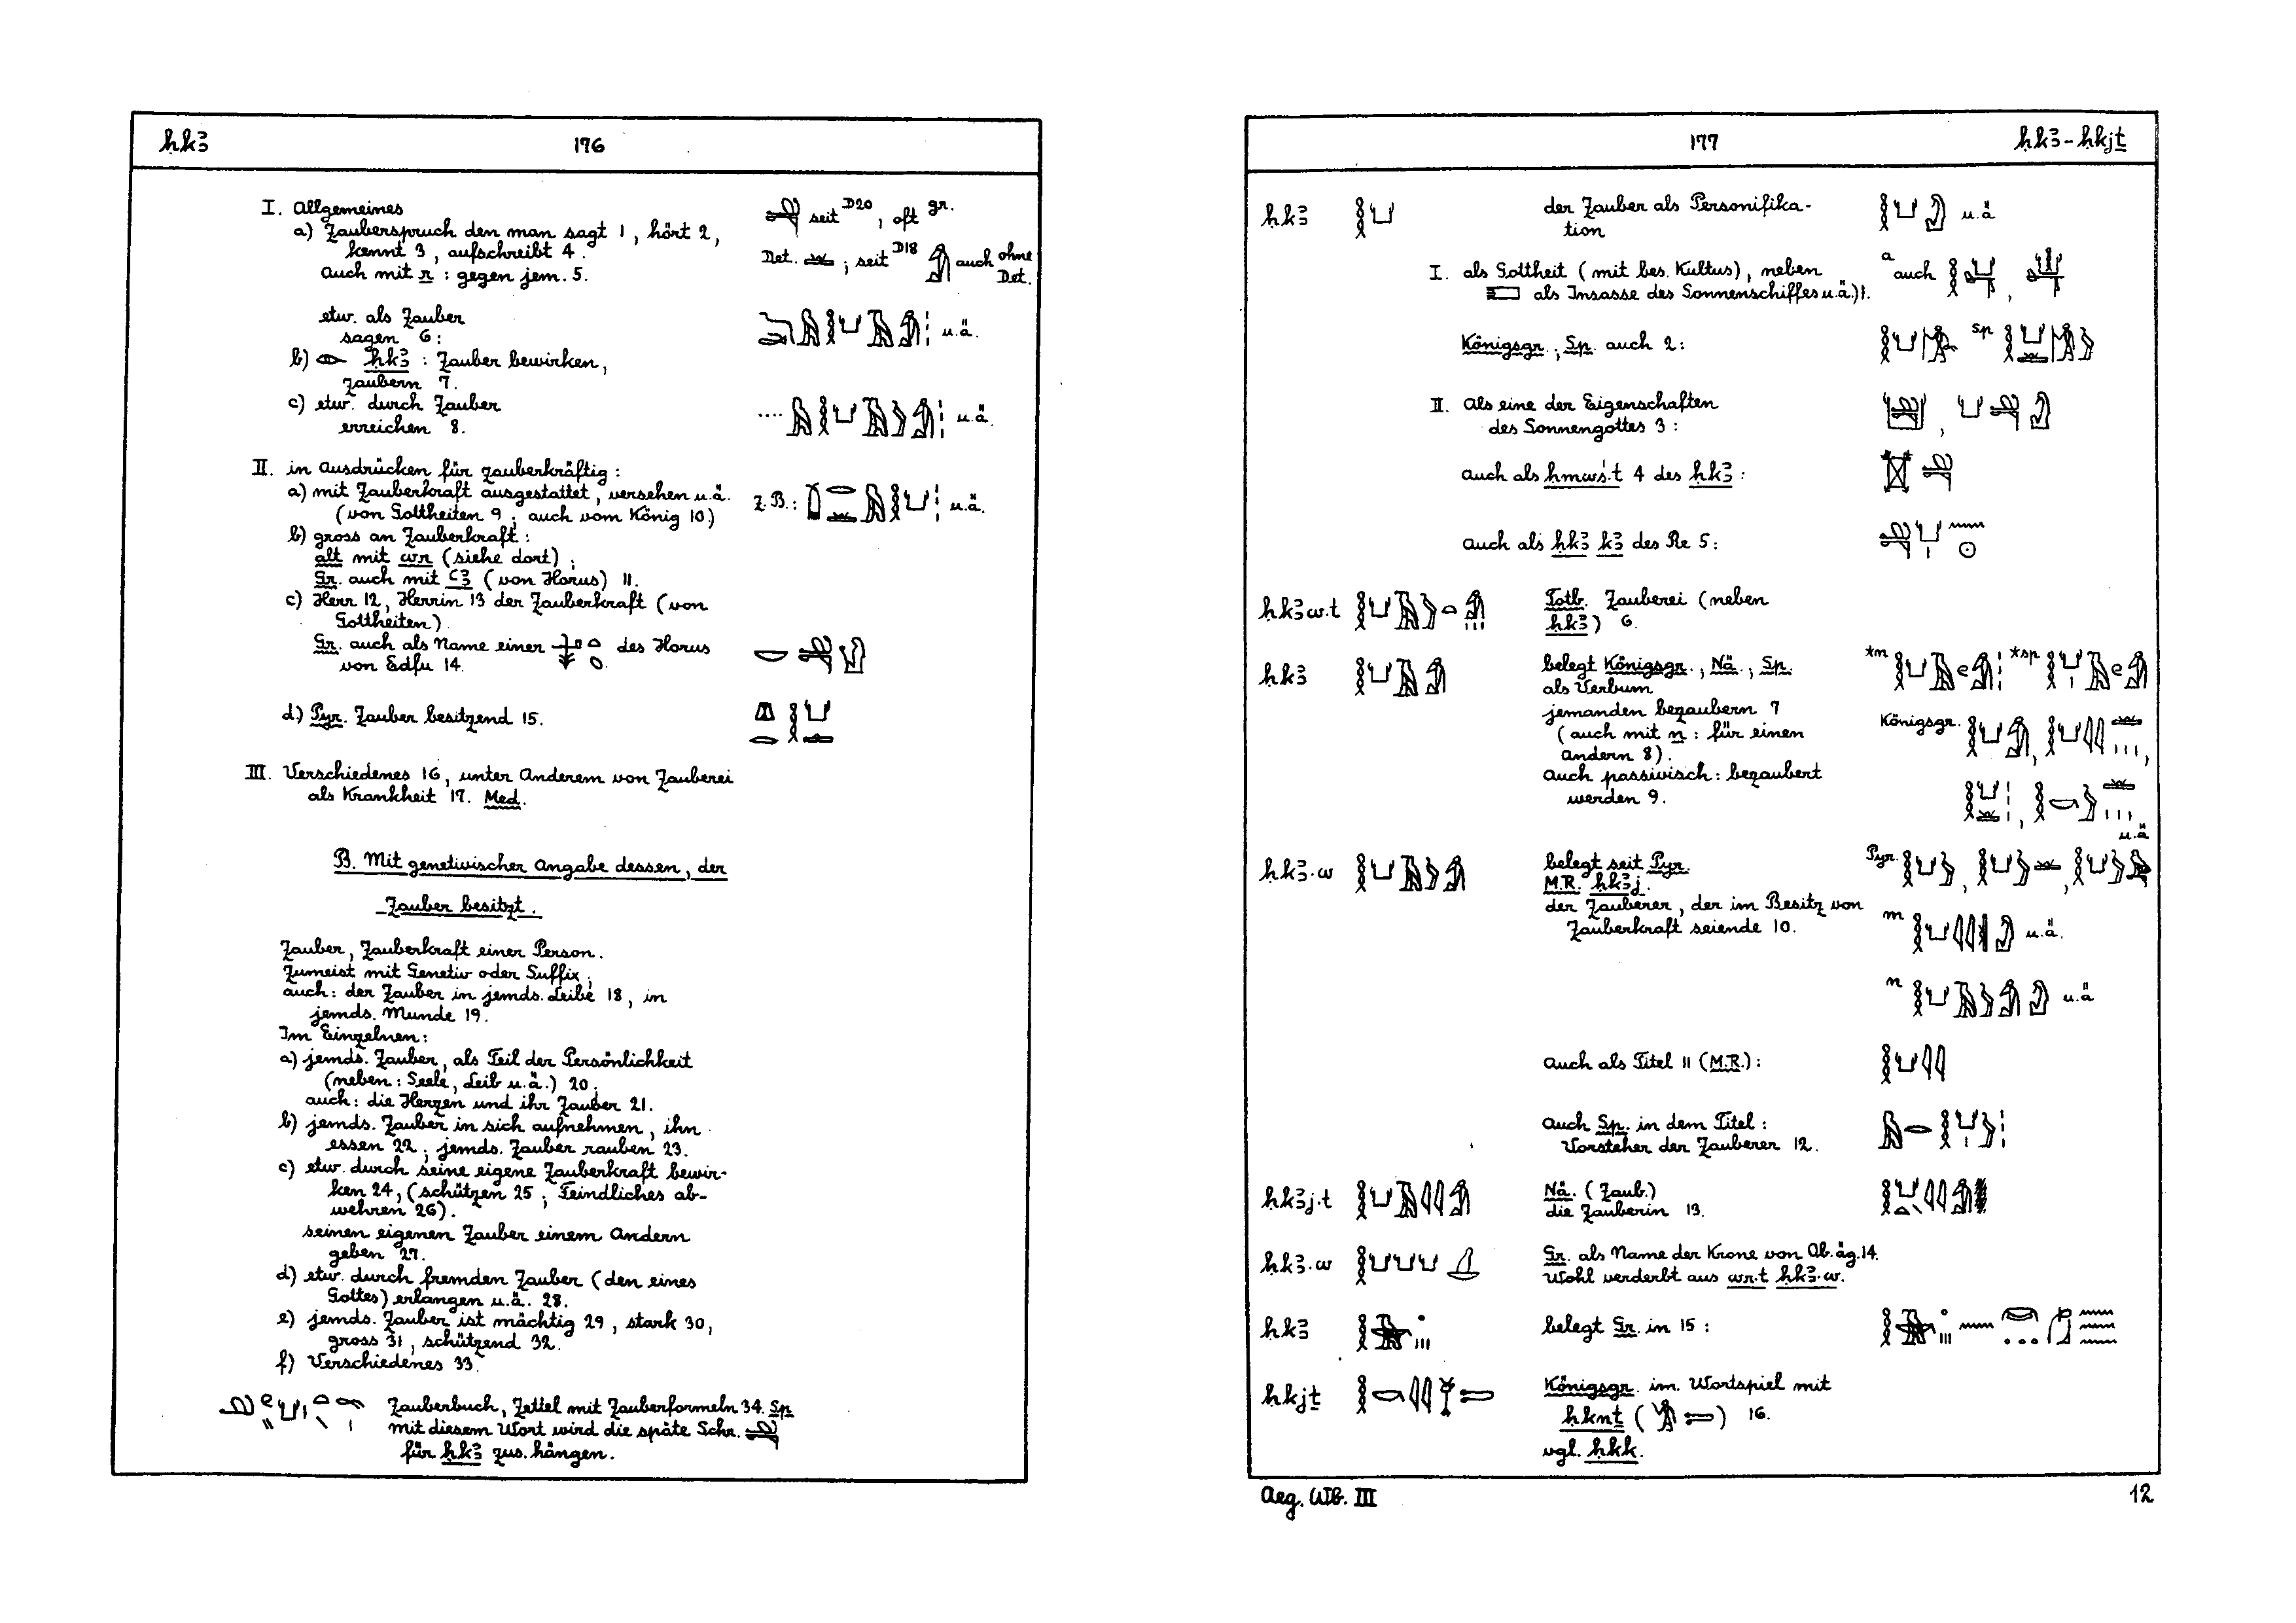 ḥkꜣ 176
I. Allgemeines
a) Zauberspruch den man sagt 1, hört 2,
kennt 3, aufschreibt 4.
Auch mit r : gegen jem. 5.
seit D20, oft gr.
Det. ; seit D18 auch ohne
Det.
etw. als Zauber
sagen 6: u.ä.
b) ḥkꜣ : Zauber bewirken,
zaubern 7.
c) etw. durch Zauber
erreichen 8. .... u.ä.
II. in Ausdrücken für zauberkräftig:
a) mit Zauberkraft ausgestattet, versehen u.ä. z.B.: u.ä.
(von Gottheiten 9; auch vom König 10)
b) gross an Zauberkraft:
alt mit wr (siehe dort);
Gr. auch mit ꜥꜣ (von Horus) 11.
c) Herr 12, Herrin 13 der Zauberkraft (von
Gottheiten)
Gr. auch als Name einer des Horus
von Edfu 14.
d) Pyr. Zauber besitzend 15.
III. Verschiedenes 16, unter Anderem von Zauberei
als Krankheit 17. Med.
B. Mit genetivischer Angabe dessen, der
Zauber besitzt.
Zauber, Zauberkraft einer Person.
Zumeist mit Genetiv oder Suffix;
auch: der Zauber in jemds. Leibe 18, in
jemds. Munde 19.
Im Einzelnen:
a) jemds. Zauber, als Teil der Persönlichkeit
(neben: Seele, Leib u.ä.) 20;
auch: die Herzen und ihr Zauber 21.
b) jemds. Zauber in sich aufnehmen, ihn
essen 22; jemds. Zauber rauben 23.
c) etw. durch seine eigene Zauberkraft bewir-
ken 24, (schützen 25; Feindliches ab-
wehren 26).
seinen eigenen Zauber einem Andern
geben 27.
d) etw. durch fremden Zauber (den eines
Gottes) erlangen u.ä. 28.
e) jemds. Zauber ist mächtig 29, stark 30,
gross 31, schützend 32.
f) Verschiedenes 33.
Zauberbuch, Zettel mit Zauberformeln 34. Sp
mit diesem Wort wird die späte Schr.
für ḥkꜣ zus. hängen.
177 ḥkꜣ - ḥkjṯ
ḥkꜣ der Zauber als Personifika- u.ä
tion
I. als Gottheit (mit bes. Kultus), neben a auch ,
als Insasse des Sonnenschiffes u.ä.) 1.
Königsgr.; Sp. auch 2: sp
II. Als eine der Eigenschaften
des Sonnengottes 3: ,
auch als ḥmws.t 4 des ḥkꜣ:
Auch als ḥkꜣ kꜣ des Re 5:
ḥkꜣw.t Totb. Zauberei (neben
ḥkꜣ) 6.
ḥkꜣ belegt Königsgr.; Nä.; Sp. *m *sp
als Verbum
jemanden bezaubern 7 Königsgr. , ,
(auch mit n : für einen
Andern 8).
Auch passivisch: bezaubert
werden 9. , u.ä
ḥkꜣ.w belegt seit Pyr. Pyr. , ,
M.R. ḥkꜣj.
der Zauberer, der im Besitz von
Zauberkraft seiende 10. m u.ä.
n u.ä
Auch als Titel 11 (M.R.):
Auch Sp. in dem Titel:
Vorsteher der Zauberer 12.
ḥkꜣj.t Nä. (Zaub.)
die Zauberin 13.
ḥkꜣ.w Gr. als Name der Krone von Ob.äg. 14.
Wohl verderbt aus wr.t ḥkꜣ.w.
ḥkꜣ belegt Gr. in 15:
ḥkjṯ Königsgr. im Wortspiel mit
ḥknṯ ( ) 16.
vgl. ḥkk.
Aeg. Wb. III 12